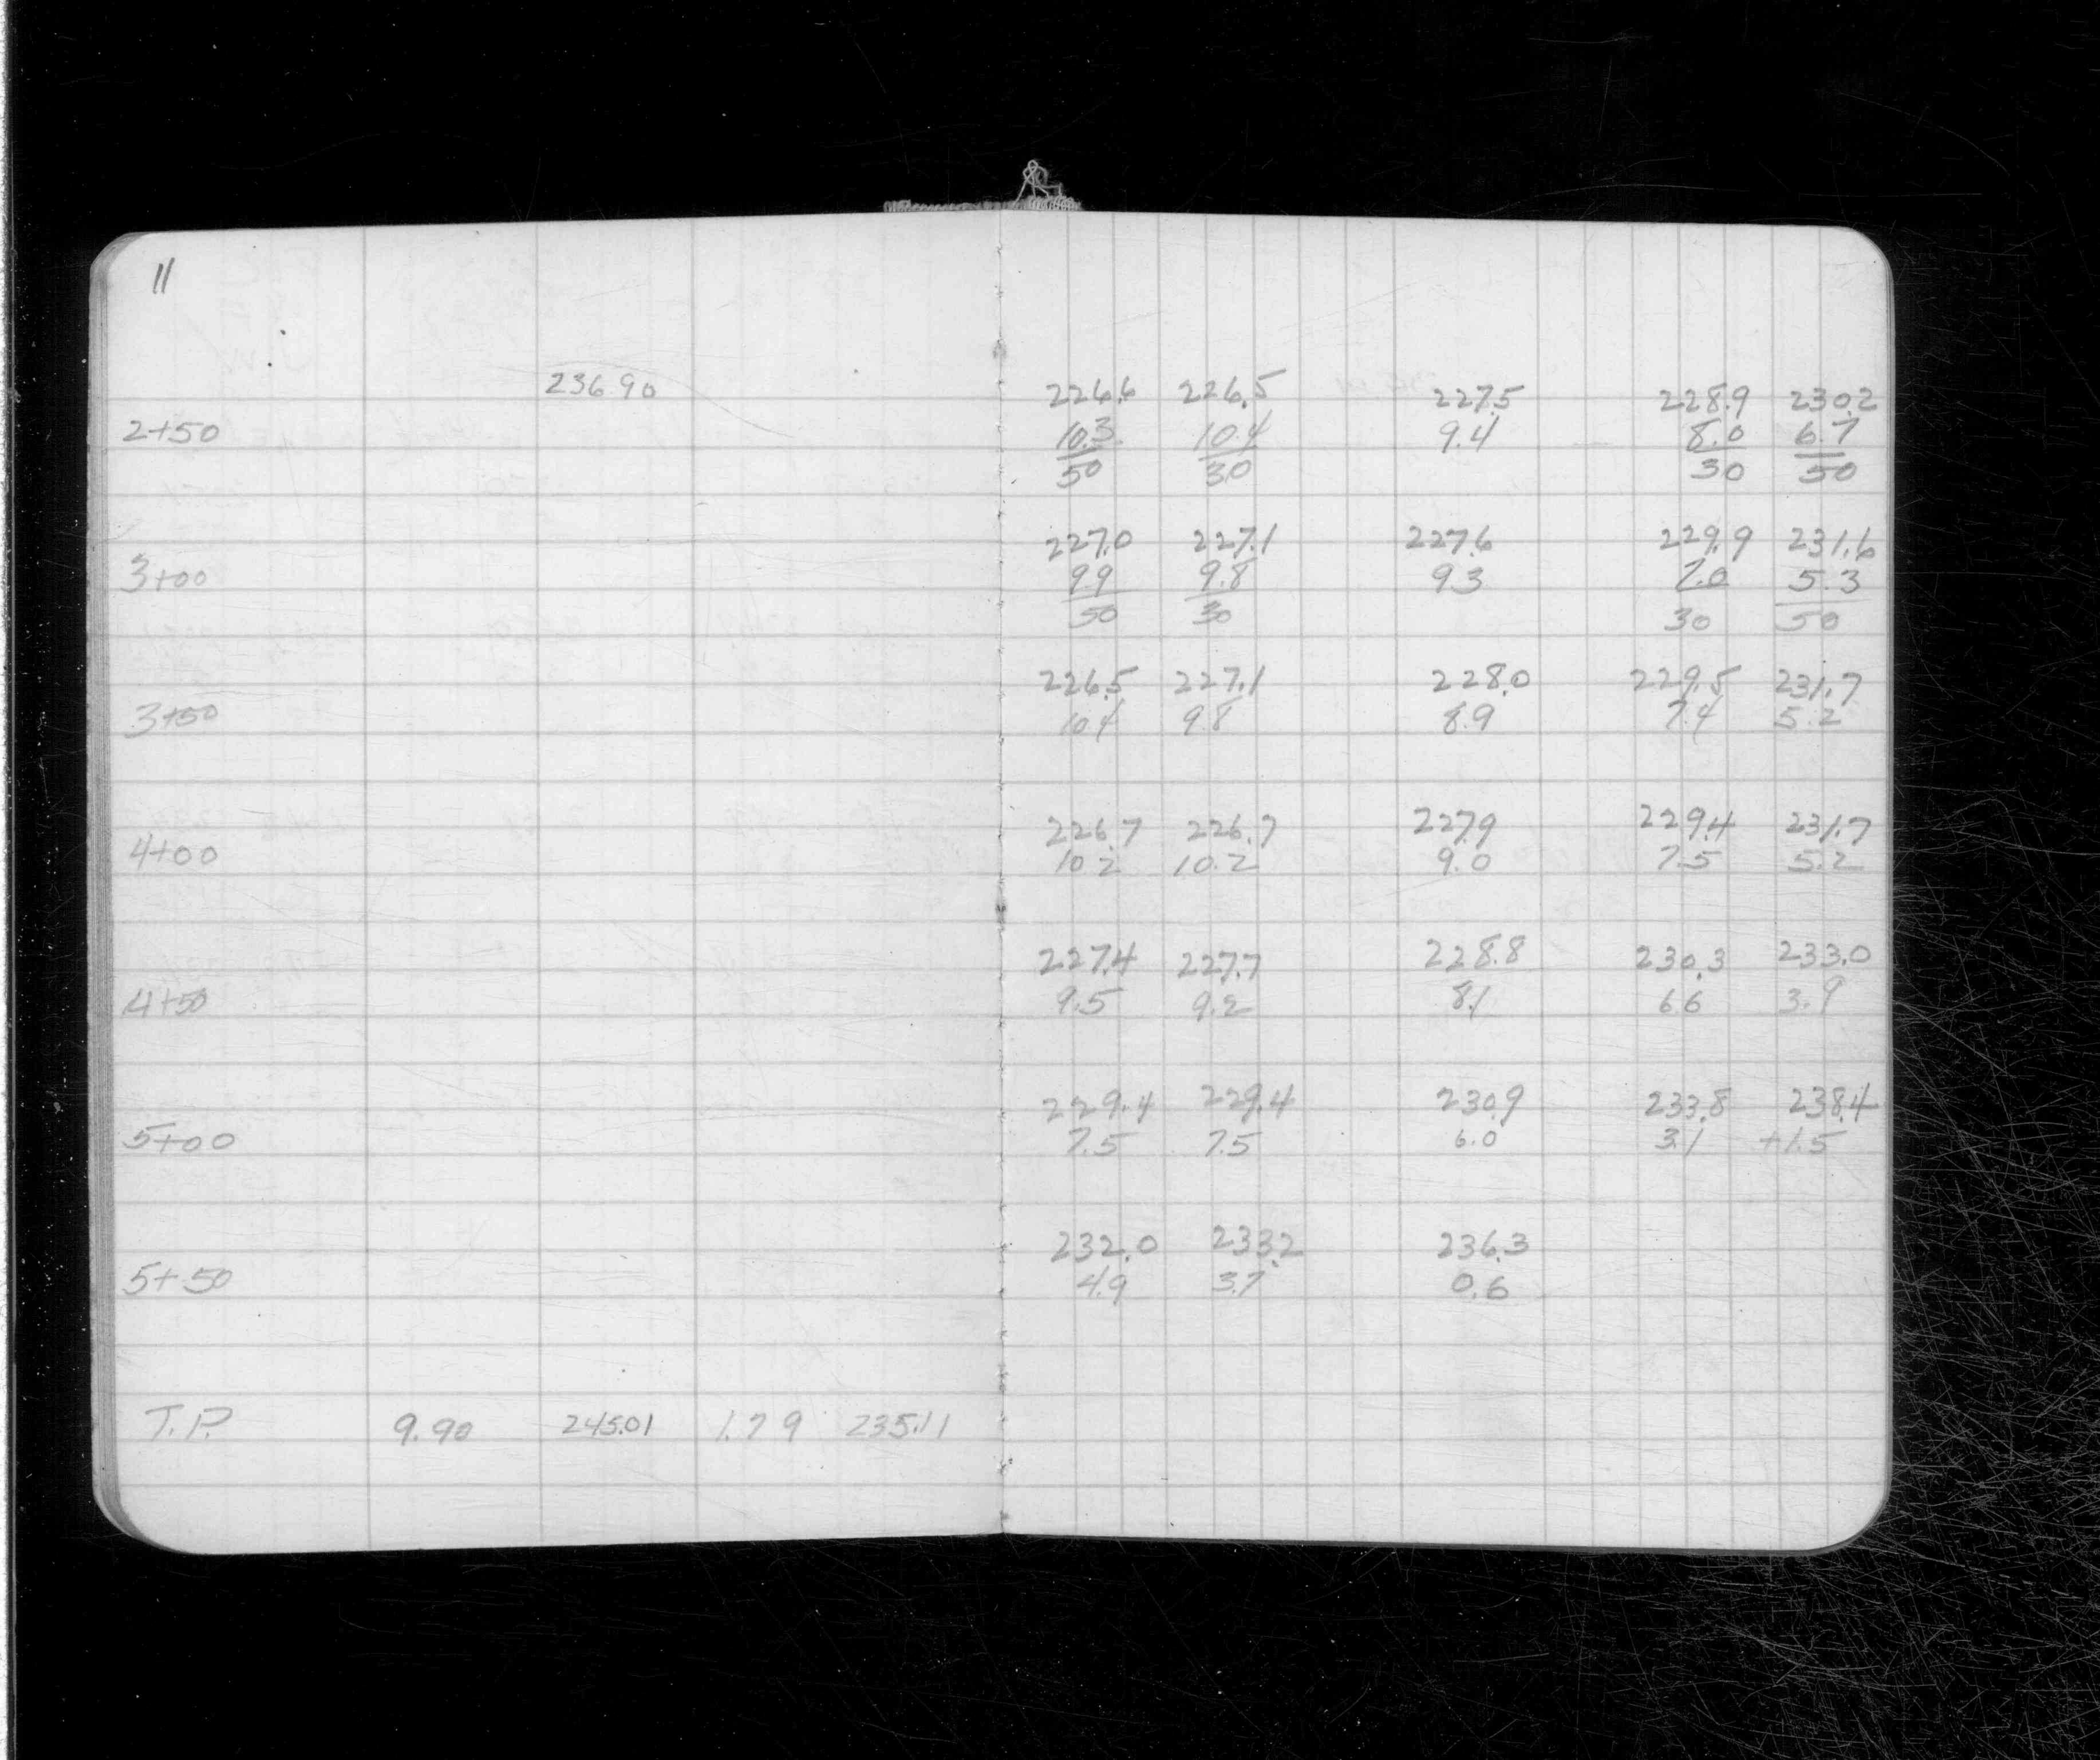 11
236.90 226.6 226.5 227.5 228.9 230.2
2+50 10.3 10.4 9.4 8.0 6.7
50 30 30 50
227.0 227.1 227.6 229.9 231.6
3+00 9.9 9.8 9.3 7.0 5.3
50 30 30 50
226.5 227.1 228.0 229.5 231.7
3+50 10.4 9.8 8.9 7.4 5.2
226.7 226.7 227.9 229.4 231.7
4+00 10.2 10.2 9.0 7.5 5.2
227.4 227.7 228.8 230.3 233.0
4+50 9.5 9.2 8.1 6.6 3.9
229.4 229.4 230.9 233.8 238.4
5+00 7.5 7.5 6.0 3.1 +1.5
232.0 233.2 236.3
5+50 4.9 3.7 0.6
T.P. 9.90 245.01 1.79 235.11